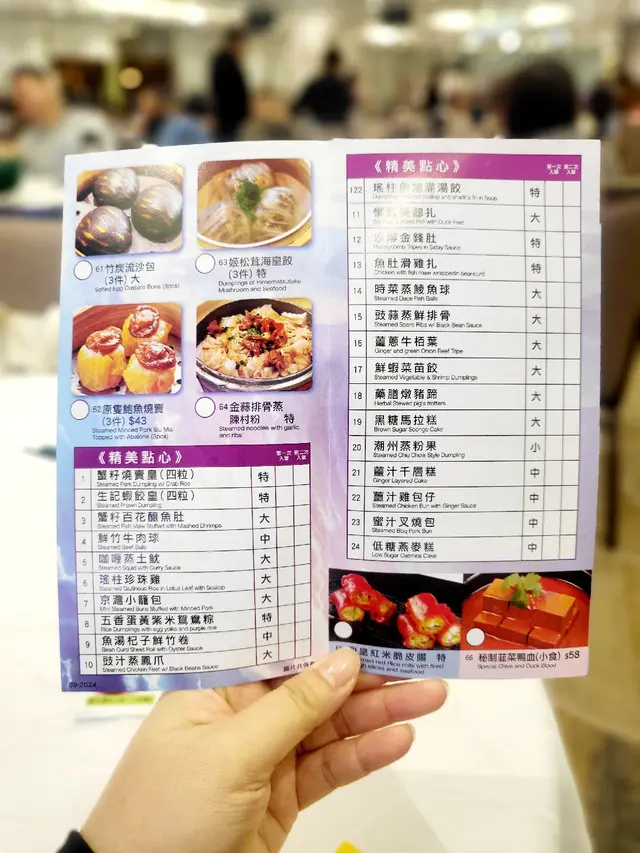 61竹炭流沙包
(3件) 大
Salted Egg Custard Buns (3pcs)
63姬松茸海皇餃
(3件) 特
Dumplings of Himematsutake
Mushroom and Seafood
62原隻鮑魚燒賣
(3件) $43
Steamed Minced Pork Siu Mai
Topped with Abalone (3pcs)
64金蒜排骨蒸
陳村粉 特
Steamed noodles with garlic
and ribs
《精美點心》
第一次 第二次
入單 入單
1 蟹籽燒賣皇(四粒) 特
Steamed Pork Dumpling w/ Crab Roe
2 生記蝦餃皇(四粒) 特
Steamed Prawn Dumpling
3 蟹籽百花釀魚肚 大
Steamed Fish Maw Stuffed with Mashed Shrimps
4 鮮竹牛肉球 中
Steamed Beef Balls
5 咖喱蒸土魷 大
Steamed Squid with Curry Sauce
6 瑤柱珍珠雞 大
Steamed Glutinous Rice in Lotus Leaf with Scallop
7 京滬小籠包 大
Mini Steamed Buns Stuffed with Minced Pork
8 五香蛋黃紫米鴛鴦粽 特
Rice Dumplings with egg yolks and purple rice
9 魚湯杞子鮮竹卷 中
Bean Curd Sheet Roll with Oyster Sauce
10 豉汁蒸鳳爪 大
Steamed Chicken Feet w/ Black Beans Sauce
09-2024
《精美點心》
第一次 第二次
入單 入單
122 瑤柱魚翅灌湯餃 特
11 大
12 沙嗲金錢肚 特
Honeycomb Tripes in Satay Sauce
13 魚肚滑雞扎 特
Chicken with fish maw wrapped in beancurd
14 時菜蒸鯪魚球 大
Steamed Dace Fish Balls
15 豉蒜蒸鮮排骨 大
Steamed Spare Ribs w/ Black Bean Sauce
16 薑蔥牛栢葉 大
Ginger and green Onion Beef Tripe
17 鮮蝦菜苗餃 大
Steamed Vegetable & Shrimp Dumplings
18 藥膳燉豬蹄 大
Herbal Stewed pig's trotters
19 黑糖馬拉糕 大
Brown Sugar Sponge Cake
20 潮州蒸粉果 小
Steamed Chiu Chow Style Dumpling
21 薑汁千層糕 中
Ginger Layered Cake
22 薑汁雞包仔 中
Steamed Chicken Bun with Ginger Sauce
23 蜜汁叉燒包 中
Steamed Bbq Pork Bun
24 低糖燕麥糕 中
Low Sugar Oatmeal Cake
皇紅米脆皮腸 特
red Rice rolls with fried
slices and seafood
66 秘制韮菜鴨血(小食) $58
Special Chive and Duck Blood